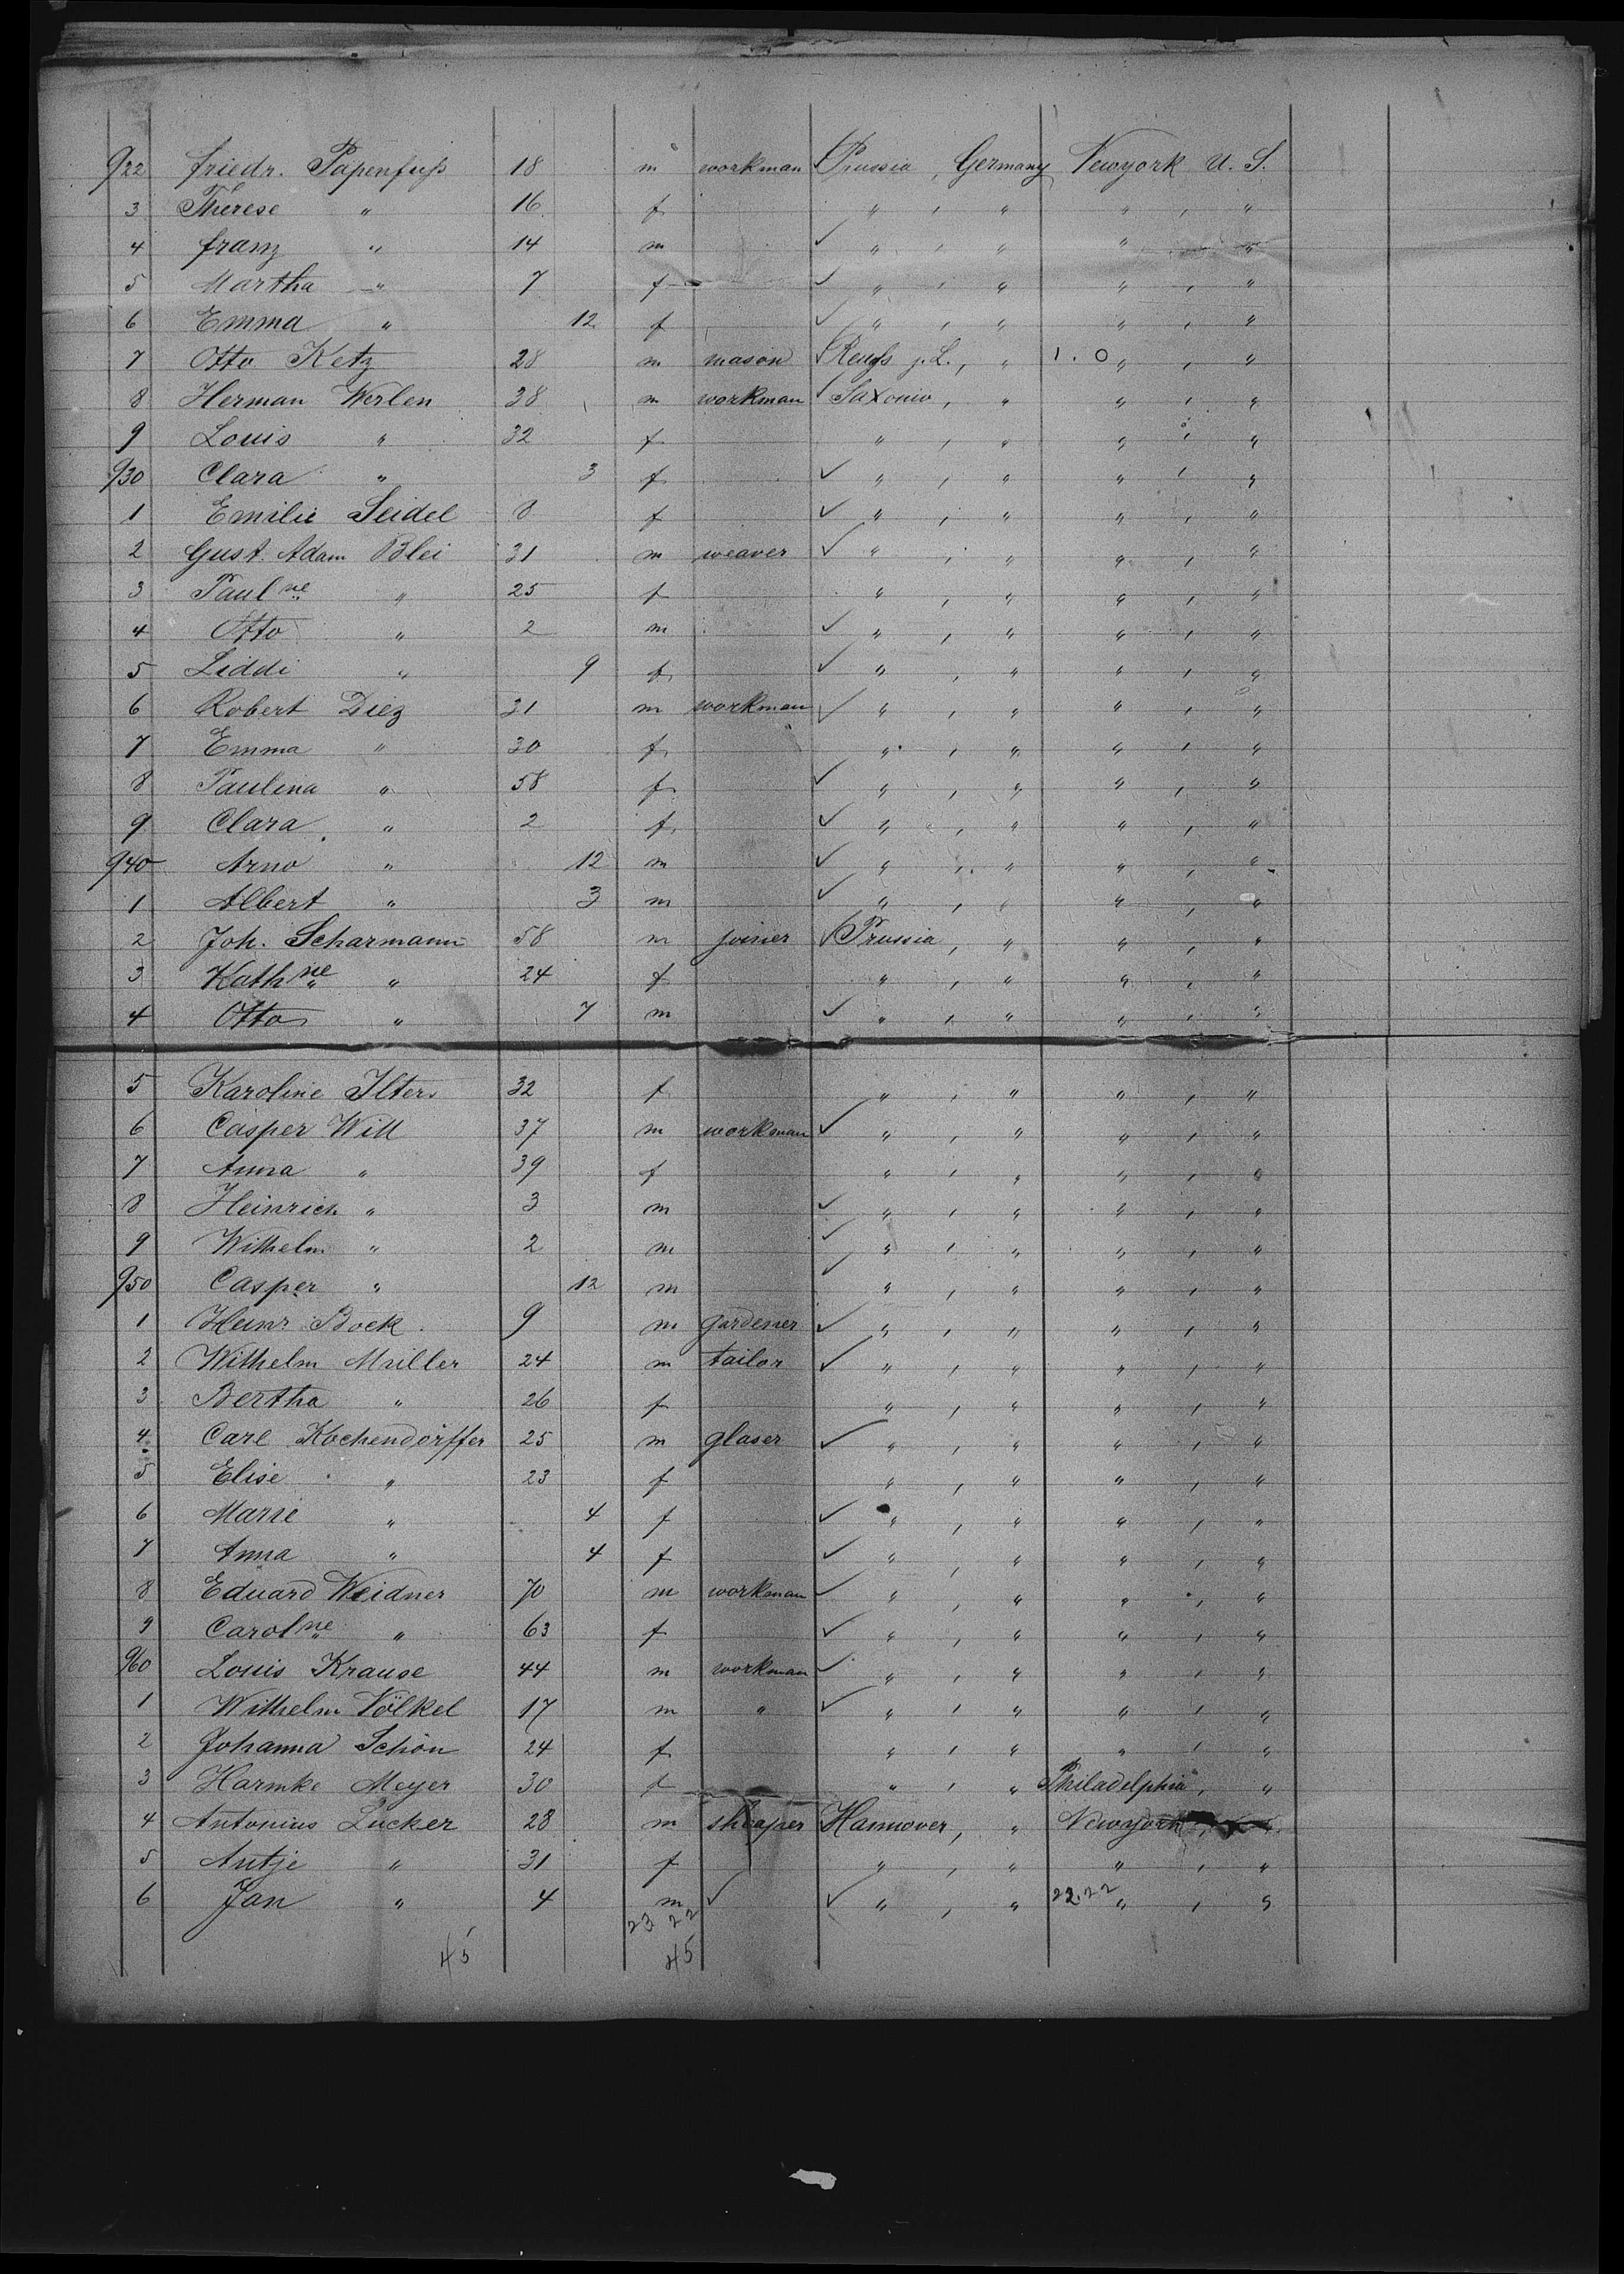 922 Friedr. Papenfuß 18 m workman ✓ Prussia, Germany Newyork U. S.
3 Therese " 16 f " , " " , "
4 Franz " 14 m ✓ " , " " , "
5 Martha " 7 f ✓ " , " " , "
6 Emma " 12 f ✓ " , " " , "
7 Otto Ketz 28 m mason ✓ Reuss j. L., " 1. 0 " , "
8 Herman Werlen 38 m workman ✓ Saxonia, " " , "
9 Louis " 32 f " , " " , "
930 Clara " 3 f ✓ " , " " , "
1 Emilie Seidel 8 f ✓ " , " " , "
2 Gust. Adam Blei 31 m weaver ✓ " , " " , "
3 Paulne " 25 f " , " " , "
4 Otto " 2 m ✓ " , " " , "
5 Liddi " 9 f ✓ " , " " , "
6 Robert Diez 31 m workman ✓ " , " " , "
7 Emma " 30 f " , " " , "
8 Paulina " 58 f ✓ " , " " , "
9 Clara " 2 f ✓ " , " " , "
940 Arno " 12 m ✓ " , " " , "
1 Albert " 3 m ✓ " , " " , "
2 Joh. Scharmann 58 m joiner ✓ Prussia, " " , "
3 Kathne " 24 f " , " " , "
4 Otto " 7 m ✓ " , " " , "
5 Karoline Ilters 32 f " , " " , "
6 Casper Will 37 m workman ✓ " , " " , "
7 Anna " 39 f " , " " , "
8 Heinrich " 3 m ✓ " , " " , "
9 Wilhelm " 2 m ✓ " , " " , "
950 Casper " 12 m ✓ " , " " , "
1 Heinr Bock 9 m gardener ✓ " , " " , "
2 Wilhelm Muller 24 m tailor ✓ " , " " , "
3 Bertha " 26 f " , " " , "
4 Carl Kochendörffer 25 m glaser ✓ " , " " , "
5 Elise " 23 f " , " " , "
6 Marie " 4 f ✓ " , " " , "
7 Anna " 4 f ✓ " , " " , "
8 Eduard Weidner 70 m workman ✓ " , " " , "
9 Carolne " 63 f ✓ " , " " , "
960 Louis Krause 44 m workman ✓ " , " " , "
1 Wilhelm Völkel 17 m " ✓ " , " " , "
2 Johanna Schön 24 f " , " " , "
3 Harmke Meyer 30 f " , " Philadelphia, "
4 Antonius Lücker 28 m Hannover, " Newyork
5 Antje " 31 f " , " " , "
6 Jan " 4 m ✓ ✓ " , " 22.22 " , "
23 22
45 45